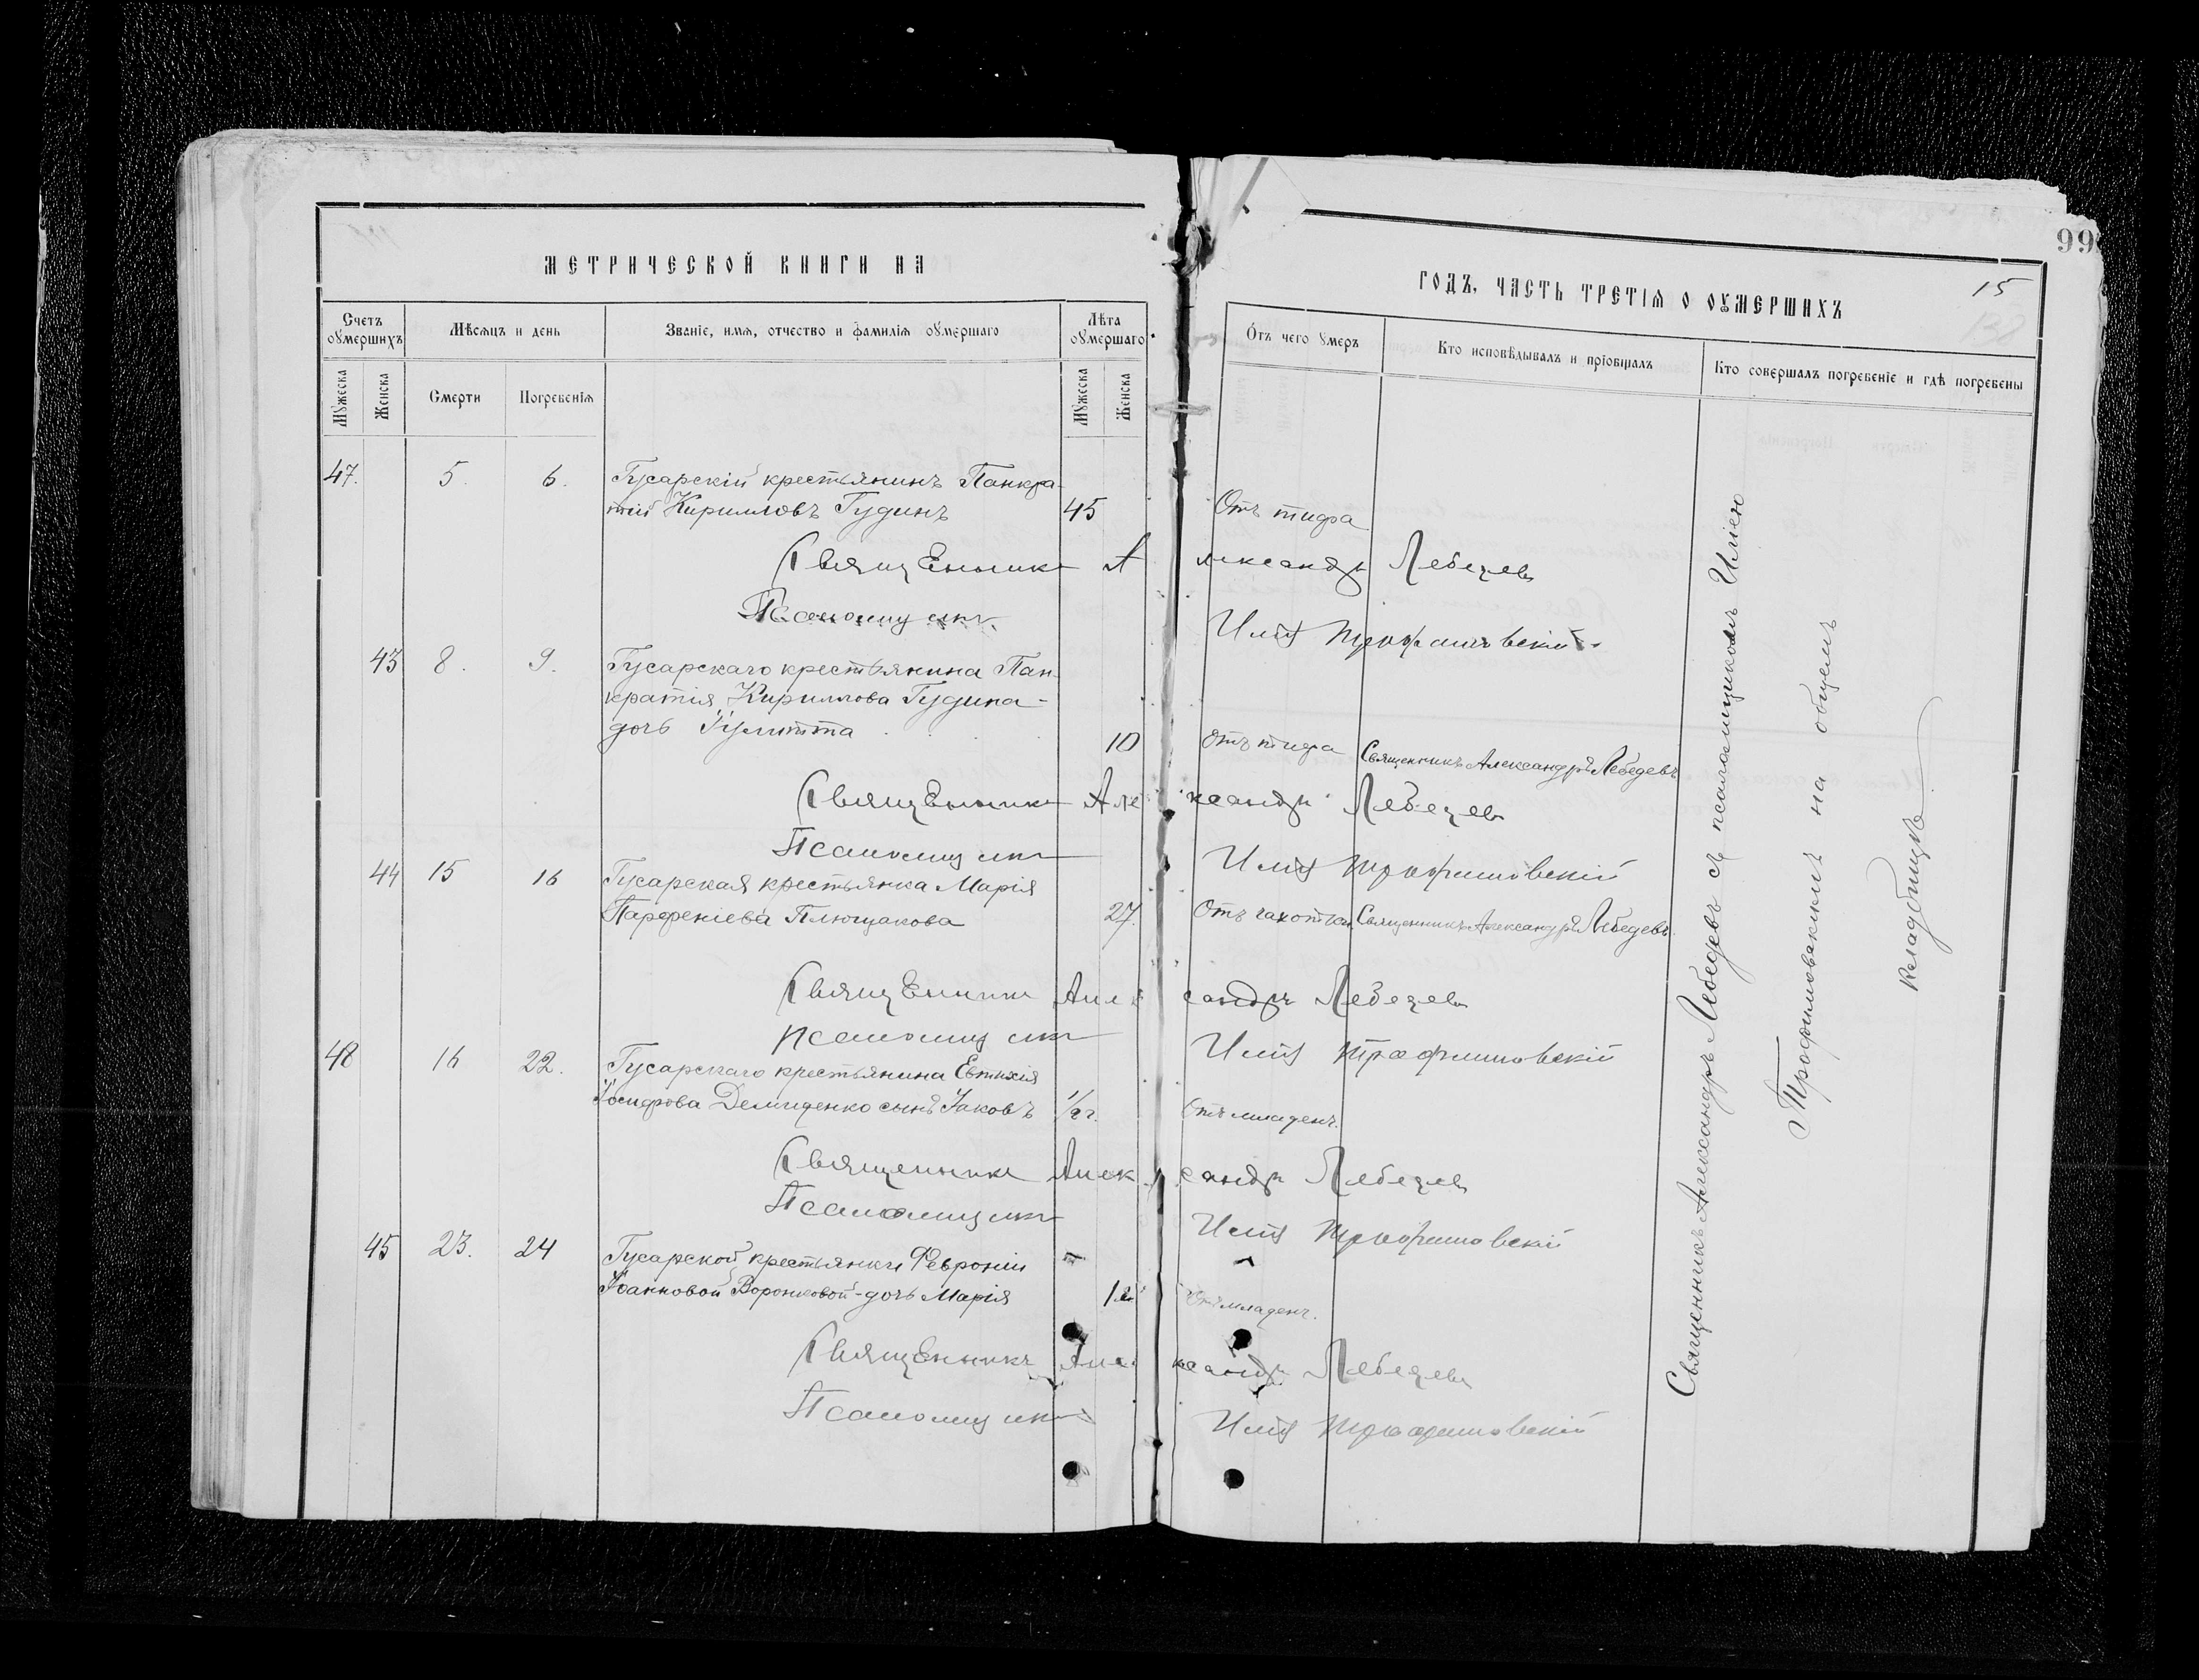 МЕТРИЧЕСКОЙ КНИГИ НА
ГОДЪ, ЧАСТЬ ТРЕТІЯ О ОУМЕРШИХЪ
99
15
132
Счетъ оумершихъ
Мѣсяцъ и день
Званіе, имя, отчество и фамилія оумершаго
Лѣта оумершаго
Отъ чего умеръ
Кто исповѣдывалъ и пріобщалъ
Кто совершалъ погребеніе и гдѣ погребены
Мужеска
Женска
Смерти
Погребенія
Мужеска
Женска
47. 5. 6. Гусарскій крестьянинъ Панкра-
тій Кирилловъ Гудинъ 45 Отъ тифа
Священникъ Александръ Лебедевъ
Псаломщикъ Илія Трофимовскій
43 8. 9. Гусарскаго крестьянина Пан-
кратія Кириллова Гудина -
дочь Іулитта 10 Отъ тифа Священникъ Александръ Лебедевъ
Священникъ Александръ Лебедевъ
Псаломщикъ Илія Трофимовскій
44 15 16 Гусарская крестьянка Марія
Парфеніева Плющакова 27. Отъ чахотки Священникъ Александръ Лебедевъ
Священникъ Александръ Лебедевъ
Псаломщикъ Илія Трофимовскій
48 16 22. Гусарскаго крестьянина Евтихія
Іосифова Демиденко сынъ Іаковъ 1/2 г. Отъ младенч.
Священникъ Александръ Лебедевъ
Псаломщикъ Илія Трофимовскій
45 23. 24 Гусарской крестьянки Февроніи
Іоанновой Вороновой - дочь Марія Отъ младенч.
Священникъ Александръ Лебедевъ
Псаломщикъ Илія Трофимовскій
Священникъ Александръ Лебедевъ съ псаломщикомъ Иліею
Трофимовскимъ на общемъ
кладбищѣ